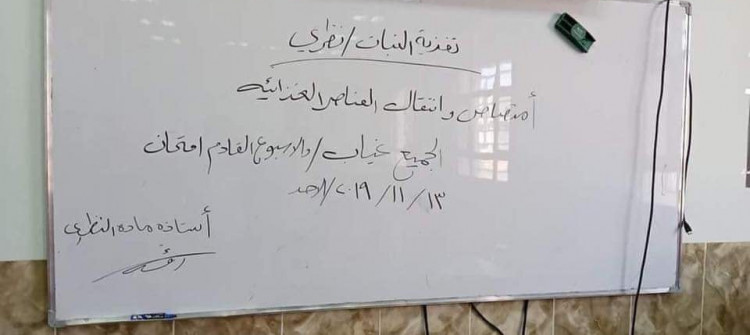 تغذية النبات / نظري
أمتصاص وانتقال العناصر الغذائيه
الجميع غياب / والاسبوع القادم امتحان
١٣ / ١١ / ٢٠١٩ / الاحد
أستاذه ماده النظري